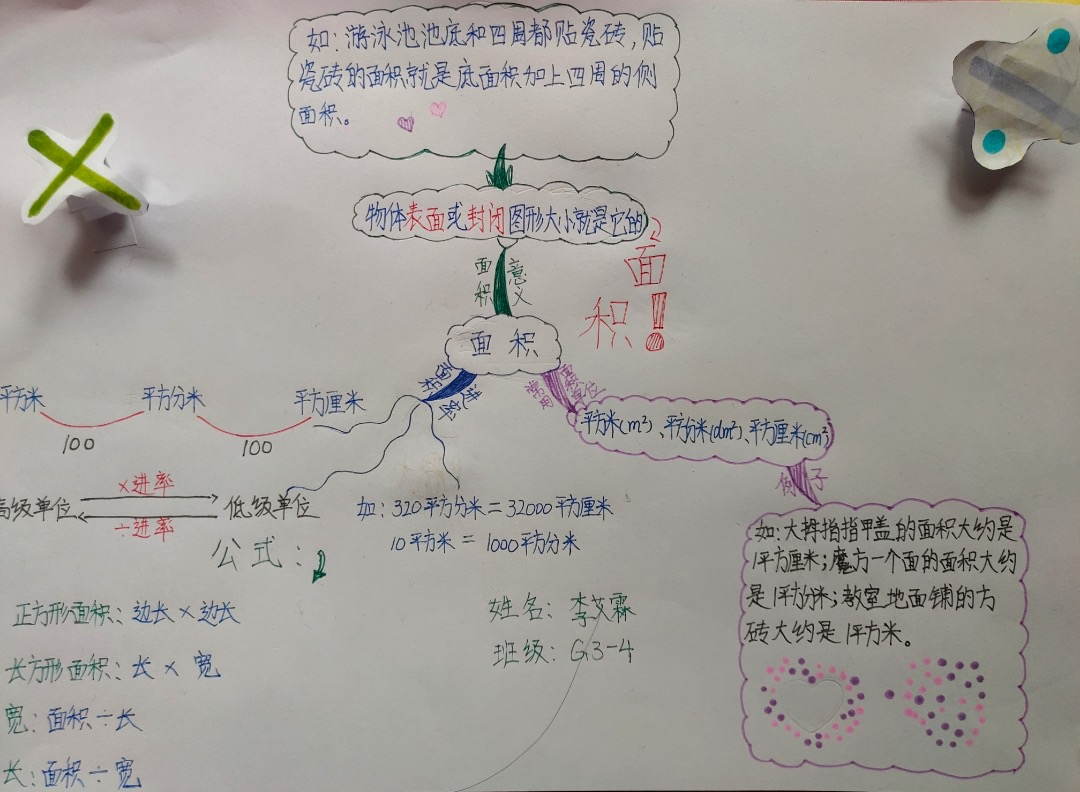 如：游泳池池底和四周都贴瓷砖，贴
瓷砖的面积就是底面积加上四周的侧
面积。
物体表面或封闭图形大小就是它的
面积！
面积
意义
面积
面积
进率
常用
面积单位
平方米 平方分米 平方厘米
100 100
高级单位 ×进率 低级单位
÷进率
如：320平方分米＝32000平方厘米
10平方米＝1000平方分米
平方米(m²)、平方分米(dm²)、平方厘米(cm²)
例子
如：大拇指指甲盖的面积大约是
1平方厘米；魔方一个面的面积大约
是1平方分米；教室地面铺的方
砖大约是1平方米。
公式：
正方形面积：边长×边长
长方形面积：长×宽
宽：面积÷长
长：面积÷宽
姓名：李艾霖
班级：G3-4